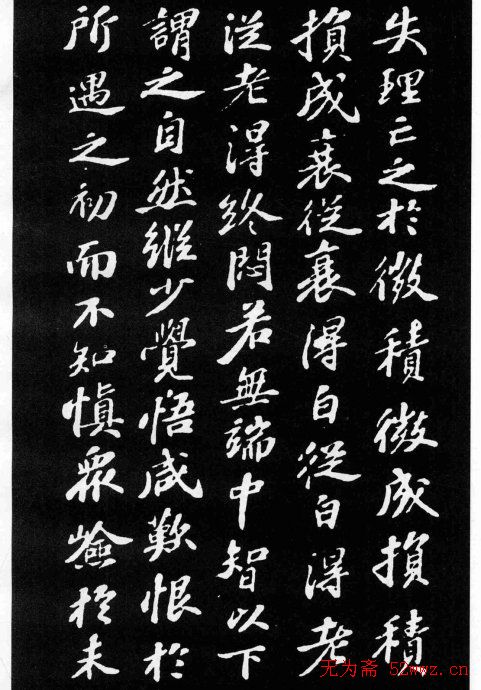 失理亡之於微積微成損積
損成衰從衰得白從白得老
從老得終悶若無端中智以下
謂之自然縱少覺悟咸歎恨於
所遇之初而不知慎衆險於未
无为斋 52wwz.cn